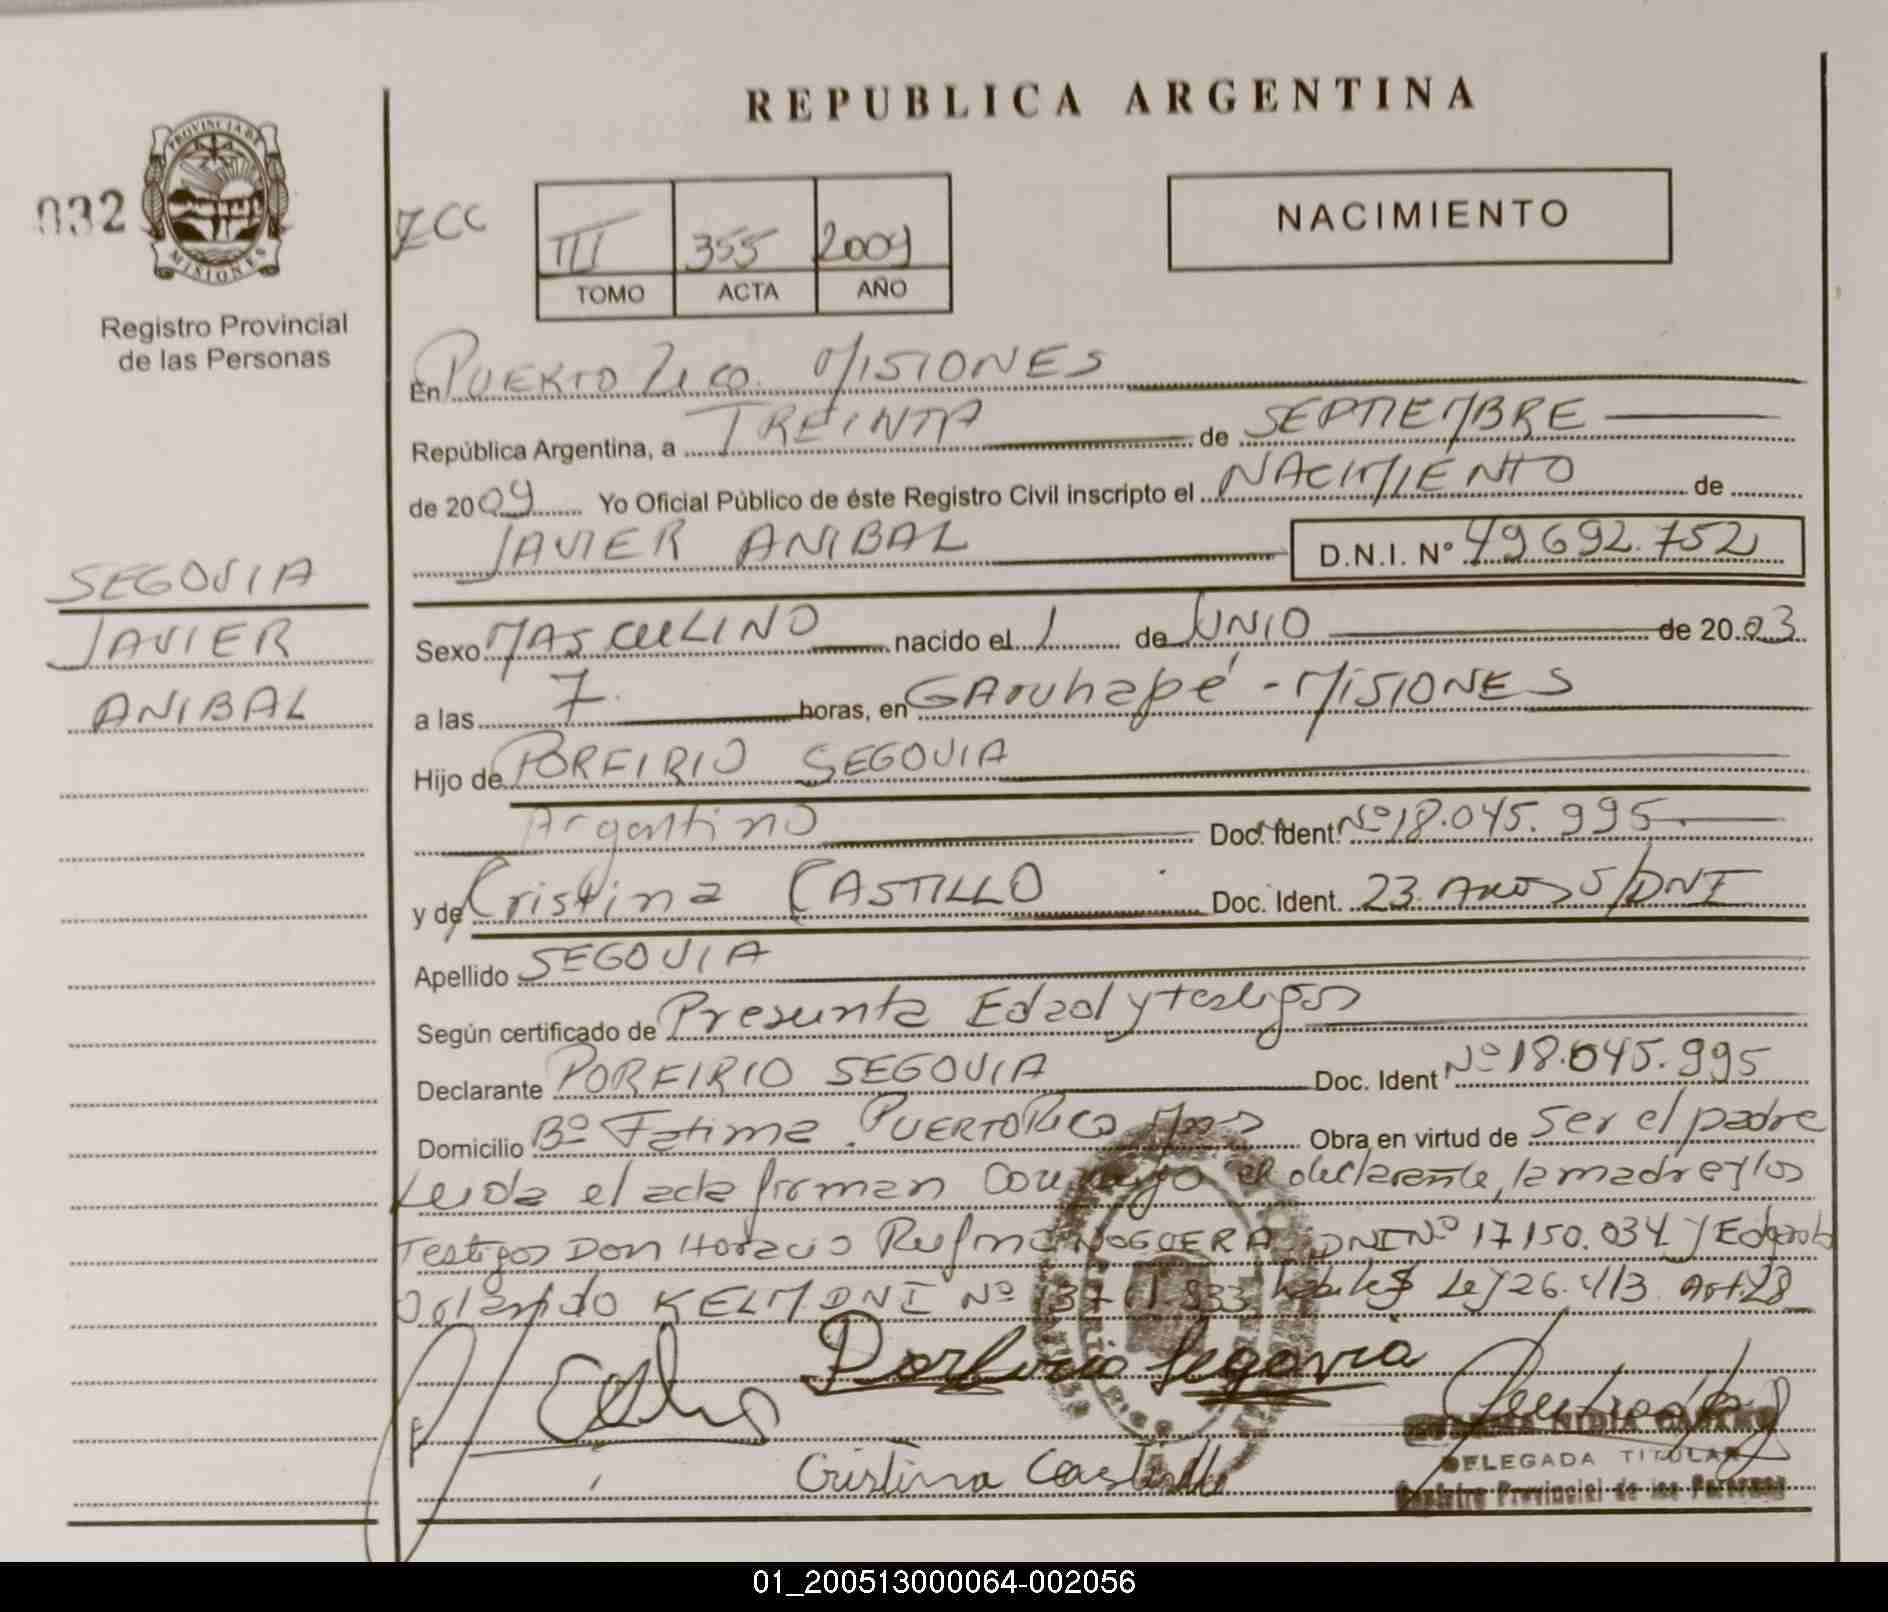 REPUBLICA ARGENTINA
PROVINCIA DE
MISIONES
032
Registro Provincial
de las Personas
III 355 2009
TOMO ACTA AÑO
NACIMIENTO
En PUERTO RICO. MISIONES
República Argentina, a TREINTA de SEPTIEMBRE
de 2009 Yo Oficial Público de éste Registro Civil inscripto el NACIMIENTO de
JAVIER ANIBAL D.N.I. N° 49692.752
SEGOVIA
JAVIER
ANIBAL
Sexo MASCULINO nacido el 1 de JUNIO de 2003
a las 7. horas, en GAruhapé - MISIONES
Hijo de PORFIRIO SEGOVIA
Argentino Doc. Ident. Nº 18.045.995
y de Cristina CASTILLO Doc. Ident. 23 AÑOS S/DNI
Apellido SEGOVIA
Según certificado de Presunta Edad y testigos
Declarante PORFIRIO SEGOVIA Doc. Ident Nº 18.045.995
Domicilio Bº Fatima. PUERTO RICO Mnes Obra en virtud de ser el padre
Leida el acta firman conmigo el declarante, la madre y los
Testigos Don Horacio Rufino NOGUERA DNI Nº 17150.034 y Edgardo
Orlando KELM DNI Nº Ley 26.413 Art.28
Porfirio Segovia
Cristina Castillo
DELEGADA TITULAR
Registro Provincial de las Personas
01_200513000064-002056